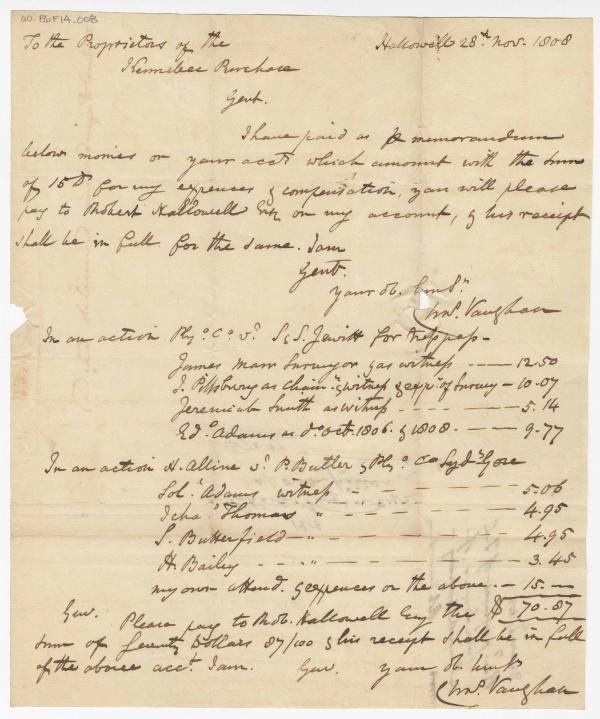 00-P6F14-008
To the Proprietors of the Hallowell 28th Nov. 1808
Kennebec Purchase
Gent.
I have paid as pr memorandum
below monies on your acct. which amount with the sum
of 15 Ds. for my expences & compensation, you will please
pay to Robert Hallowell Esqr. on my account, & his receipt
shall be in full for the same. I am
Gent.
your ob. hum St.
Chas. Vaughan
In an action Plyo. Co. vs. S & S. Jewitt for trespass -
James Marr Surveyor & as witness — 12.50
J. Pittsbury as Chainn. & witness & exps. of Survey — 10.07
Jeremiah Smith as witness - - - - 5.14
Edd. Adams as do. Octb. 1806. & 1808. - 9.77
In an action H. Alline vs. P. Butler & Plyo. Co. Gore
Sol. Adams witness - - - - 5.06
Icha. Thomas " - - - 4.95
S. Butterfield — " - - 4.95
H. Bailey - - - " - - - 3.45
my own attend. & expences on the above. - 15. —
$ 70.87
Gen. Please pay to Rob. Hallowell Esq the
sum of Seventy Dollars 87/100 & his receipt shall be in full
of the above acct. I am. Gen. your ob. hum St
Chas. Vaughan